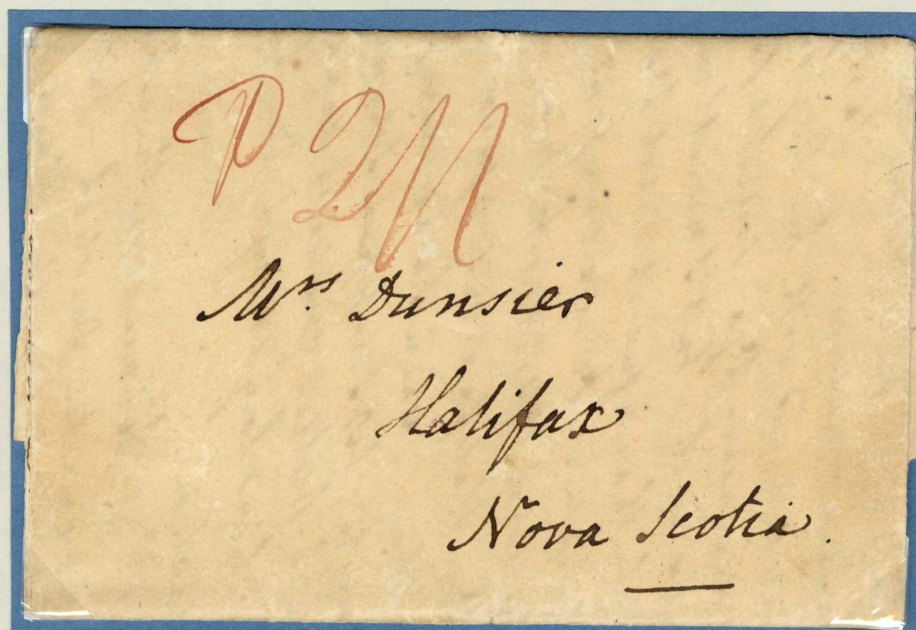 P 2N
Mrs Dunsier
Halifax
Nova Scotia.